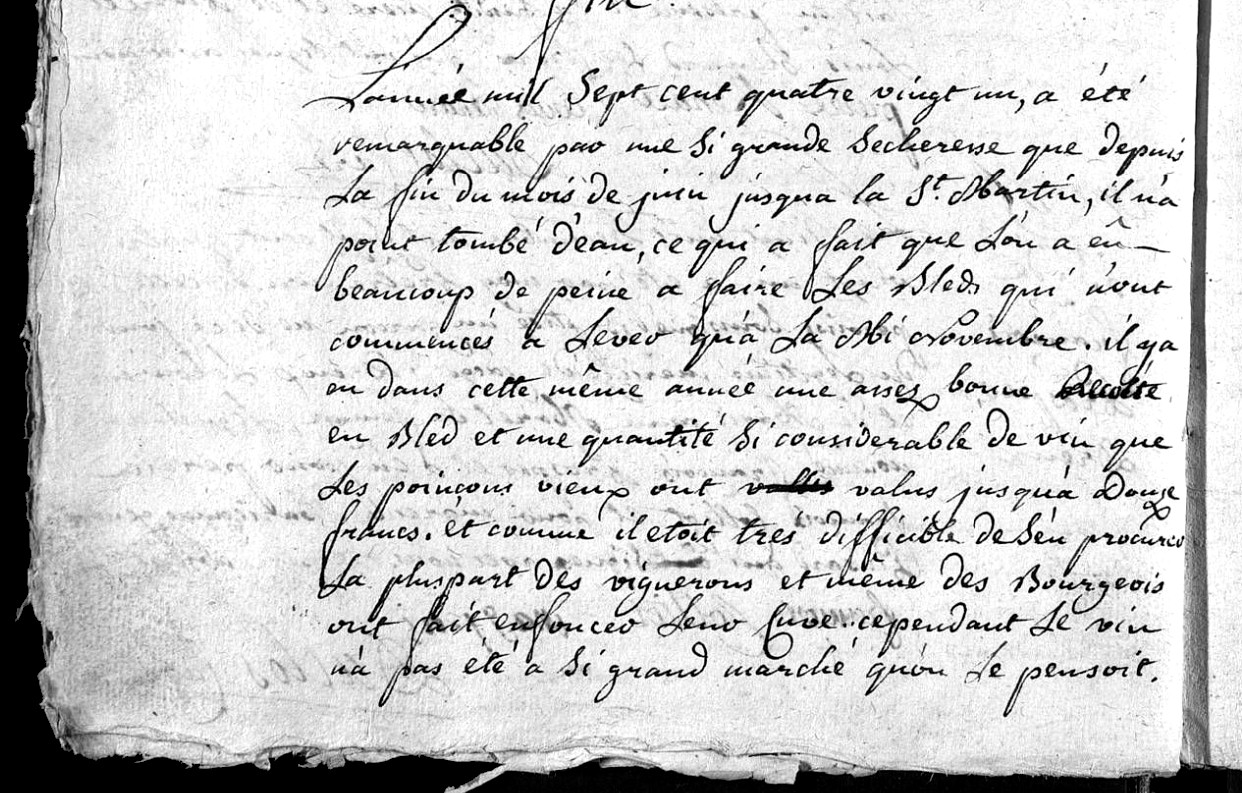 fin
L'année mil Sept cent quatre vingt un, a été
remarquable par une Si grande Secheresse que depuis
La fin du mois de juin jusqua la St. Martin, il n'a
point tombé d'eau, ce qui a fait que L'on a eû
beaucoup de peine a faire Les Bleds qui n'ont
commencés a Lever qu'a La Mi Novembre. il ya
eu dans cette même année une assez bonne Recolte
en Bled et une quantité Si considerable de vin que
Les poinçons vieux ont valus jusqu'a Douze
francs. et comme il etoit trés difficile de S'en procurer
La pluspart des vignerons et même des Bourgeois
ont fait enfoncer Leur Cuve. cependant Le vin
n'a pas eté a Si grand marché qu'on Le pensoit.